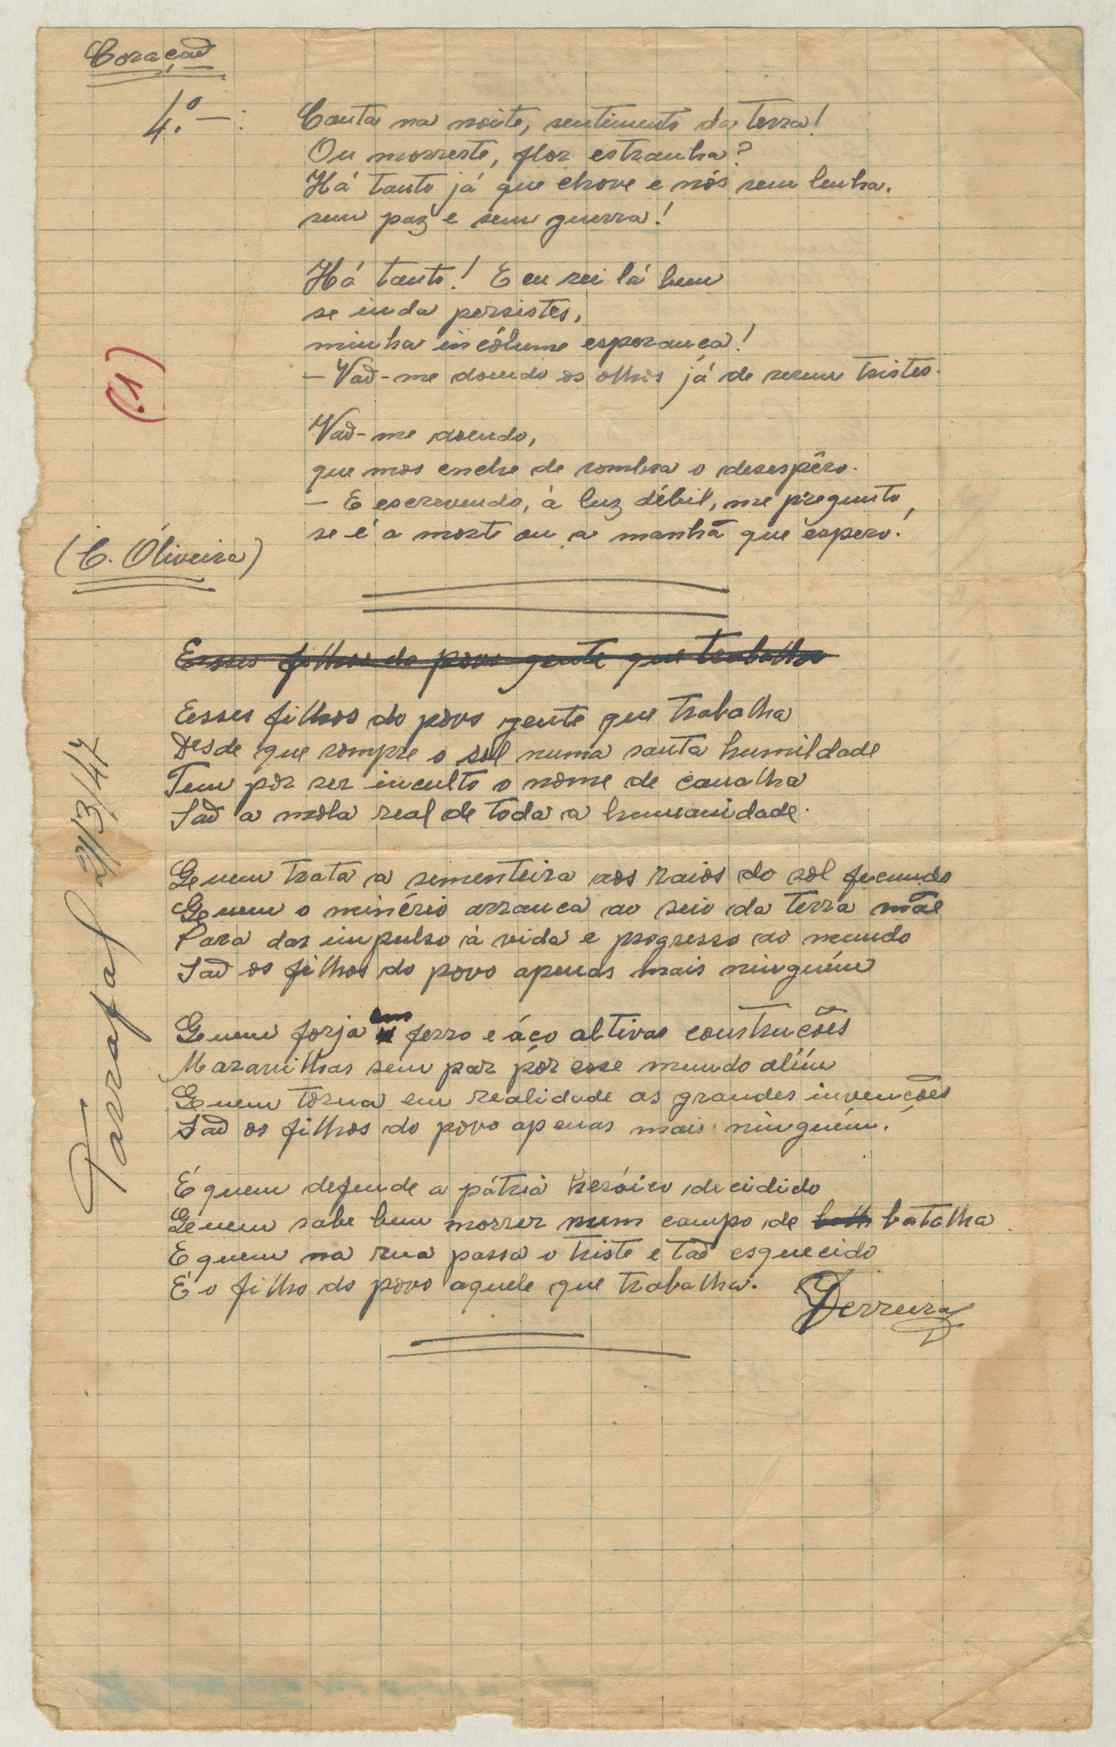 Coração
4.º —:
Canta na noite, sentimento da terra!
Ou morreste, flor estranha?
Há tanto já que chove e nós sem lenha,
sem paz e sem guerra!
Há tanto! E eu sei lá bem
se inda persistes,
minha incólume esperança!
— Vão-me doendo os olhos já de serem tristes.
(1)
Vão-me doendo,
que mos enche de sombra o desespêro.
— E escrevendo, à luz débil, me pregunto,
se é a morte ou a manhã que espero.
(C. Óliveira)
Esses filhos do povo gente que trabalha
Esses filhos do povo gente que trabalha
Desde que rompe o sol numa santa humildade
Tem por ser inculto o nome de canalha
São a mola real de toda a humanidade.
Quem trata a sementeira aos raios do sol fecundo
Quem o minério arranca ao seio da terra mãe
Para dar impulso à vida e progresso ao mundo
São os filhos do povo apenas mais ninguém
Quem forja em ferro e áço altivas construções
Maravilhas sem par pôr esse mundo alím
Quem torna em realidade as grandes invenções
São os filhos do povo apenas mais ninguém.
É quem defende a pátria heróico decidido
Quem sabe bem morrer num campo de bath batalha
E quem na rua passa o triste e tão esquecido
É o filho do povo aquele que trabalha.
Ferreira
Tarrafal 2/3/47